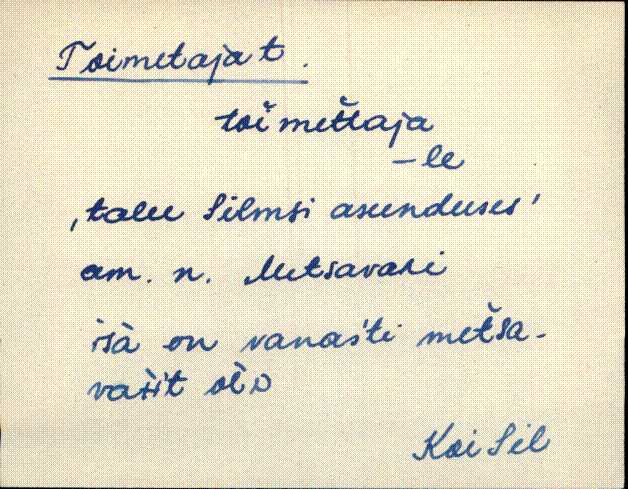 Toimetaja t.
toi mettaja
-le
‚talu Silmsi asunduses'
am. n. Metsavahi
isà on vanas'ti metša-
važi't
Koi Sil